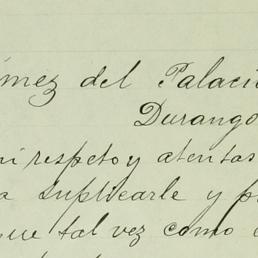 ómez del Palacio
Durango
mi respeto y atentas
a suplicarle y p
que tal vez como